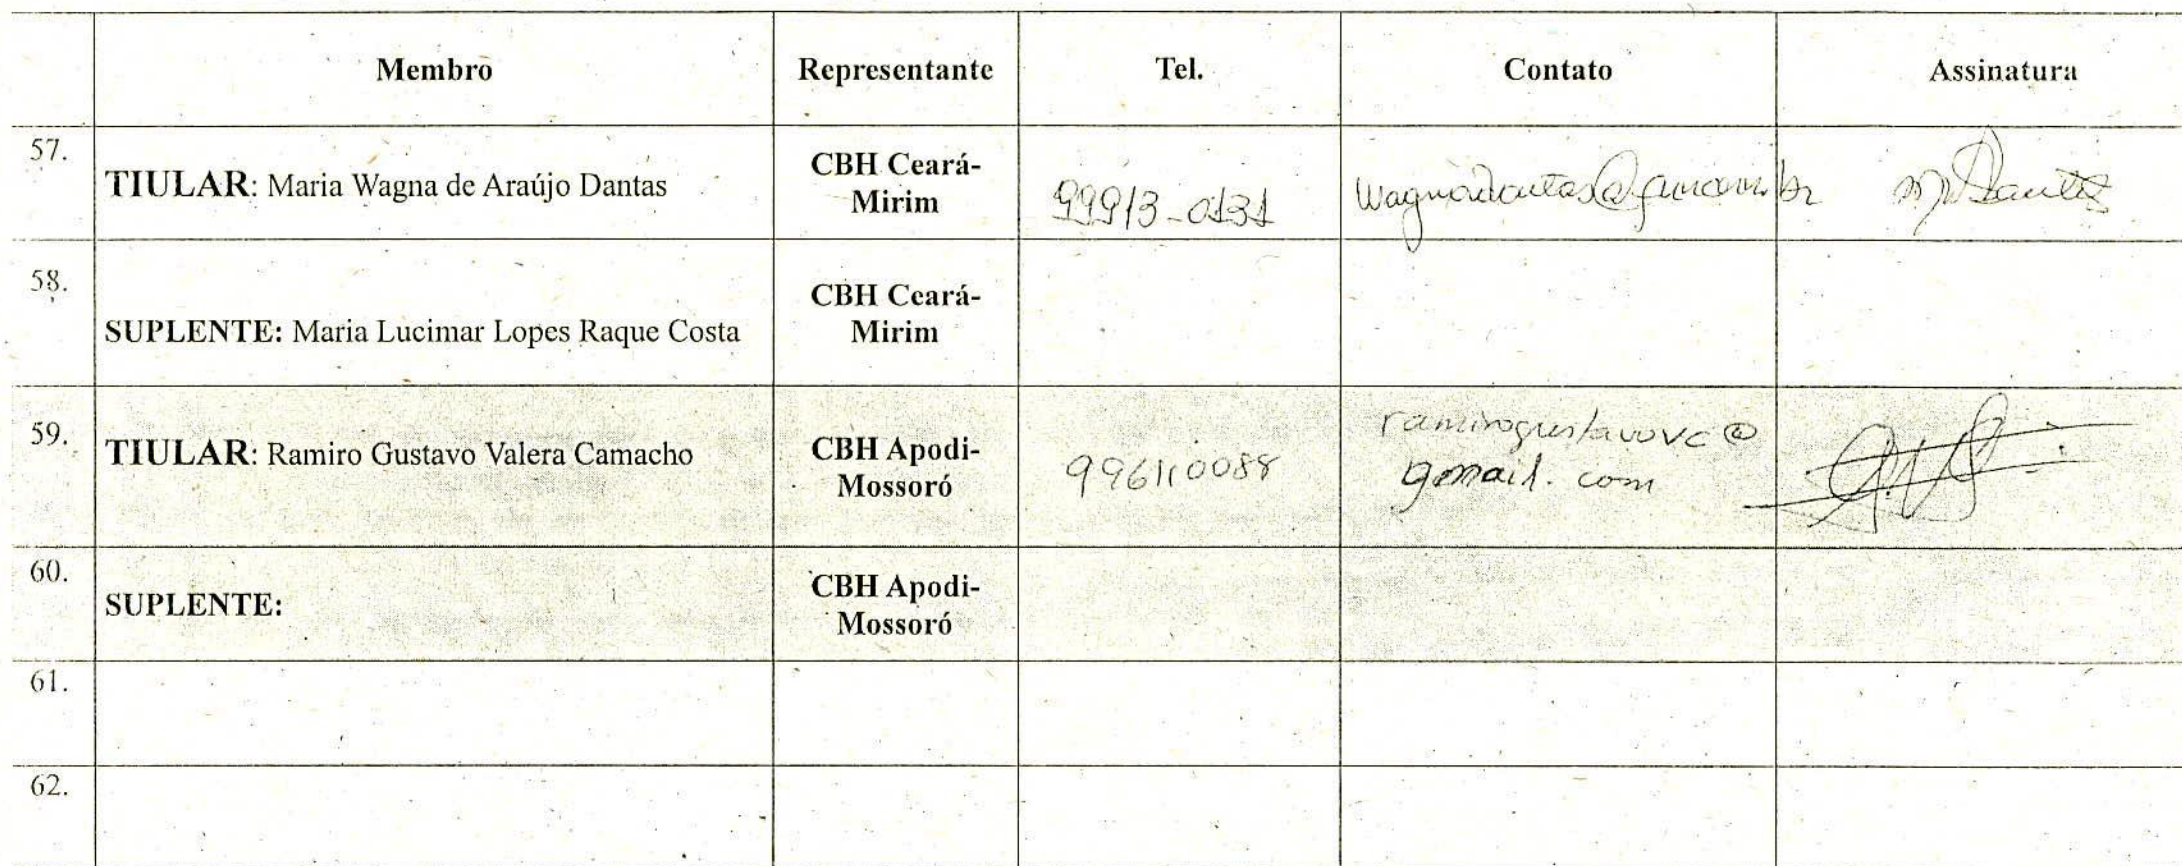 Membro Representante Tel. Contato Assinatura
57.
TIULAR: Maria Wagna de Araújo Dantas
CBH Ceará-
Mirim
99913-0131
58.
SUPLENTE: Maria Lucimar Lopes Raque Costa
CBH Ceará-
Mirim
59.
TIULAR: Ramiro Gustavo Valera Camacho
CBH Apodi-
Mossoró
996110088
ramirogustavovc@
gmail.com
60.
SUPLENTE:
CBH Apodi-
Mossoró
61.
62.